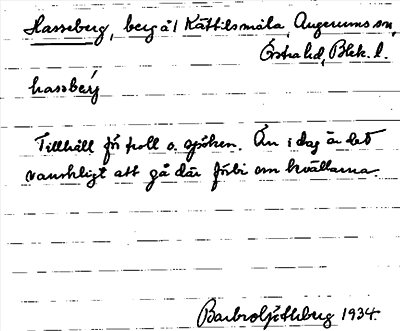 Hasseberg, berg å/ Kättilsmåla, Augerums sn,
Östra hd, Blek. l.
hassbærj
Tillhåll för troll o. spöken. Än i dag är det
vanskligt att gå där förbi om kvällarna.
Barbro Ljöthberg 1934.